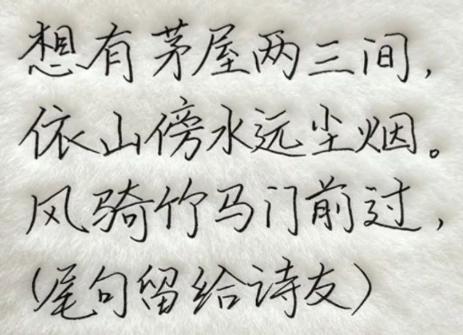 想有茅屋两三间,
依山傍水远尘烟。
风骑竹马门前过,
(尾句留给诗友)